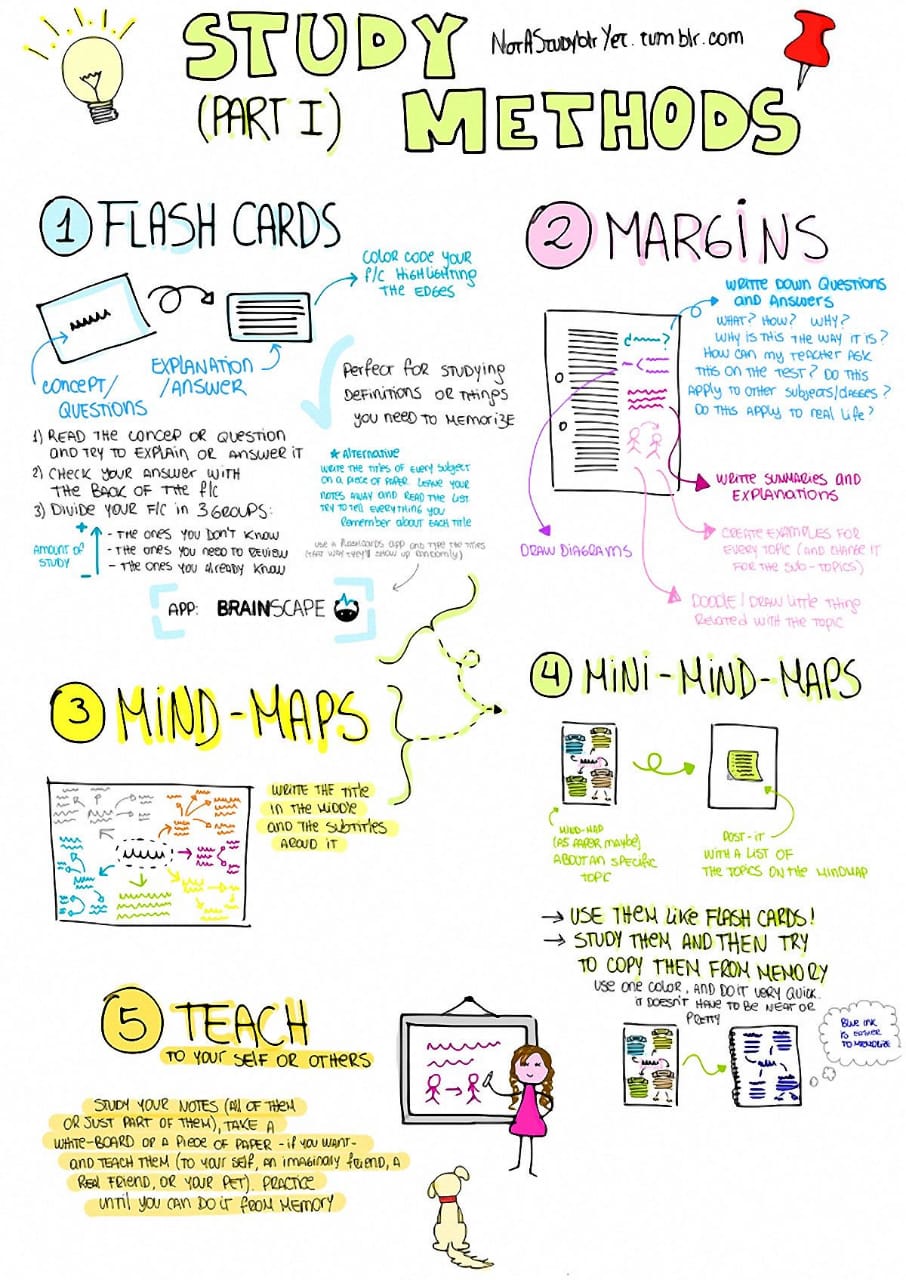 STUDY
NotAStudyblrYet.tumblr.com
(PART I)
METHODS
1 FLASH CARDS
COLOR CODE YOUR
f/c HIGHLIGHTING
THE EDGES
CONCEPT/
QUESTIONS
EXPLANATION
/ANSWER
Perfect for studying
definitions or things
you need to memorize
1) READ THE CONCEP OR QUESTION
AND TRY TO EXPLAIN OR ANSWER IT
2) CHECK YOUR ANSWER WITH
THE BACK OF THE f/c
3) DIVIDE YOUR F/C IN 3 GROUPS:
- THE ONES YOU DON'T KNOW
- THE ONES YOU NEED TO REVIEW
- THE ONES YOU ALREADY KNOW
+
AMOUNT OF
STUDY
-
★ Alternative
WRITE THE TITLES OF EVERY SUBJECT
ON A PIECE OF PAPER. LEAVE YOUR
NOTES AWAY AND READ THE LIST
TRY TO TELL EVERYTHING YOU
Remember about EACH TITLE
USE A FLASHCARDS APP AND TYPE THE TITLES
(THAT WAY THEY'LL SHOW UP RANDOMLY)
APP: BRAINSCAPE
2 MARGINS
WRITE DOWN QUESTIONS
AND ANSWERS
WHAT? HOW? WHY?
WHY IS THIS THE WAY IT IS?
HOW CAN MY TEACHER ASK
THIS ON THE TEST? DO THIS
APPLY TO OTHER SUBJECTS/CLASSES?
DO THIS APPLY TO REAL LIFE?
WRITE SUMMARIES AND
EXPLANATIONS
DRAW DIAGRAMS
CREATE EXAMPLES FOR
EVERY TOPIC (AND CHANGE IT
FOR THE SUB-TOPICS)
DOODLE/DRAW LITTLE THING
RELATED WITH THE TOPIC
3 MIND-MAPS
WRITE THE TITLE
IN THE MIDDLE
AND THE SUBTITLES
AROUD IT
4 MINI-MIND-MAPS
MIND-MAP
(A5 PAPER MAYBE)
ABOUT AN SPECIFIC
TOPIC
POST-IT
WITH A LIST OF
THE TOPICS ON THE MINDMAP
→ USE THEM LIKE FLASH CARDS!
→ STUDY THEM AND THEN TRY
TO COPY THEM FROM MEMORY
USE ONE COLOR, AND DO IT VERY QUICK.
IT DOESN'T HAVE TO BE NEAT OR
PRETTY
BLUE INK
IS EASIER
TO MEMORIZE
5 TEACH
TO YOUR SELF OR OTHERS
STUDY YOUR NOTES (ALL OF THEM
OR JUST PART OF THEM), TAKE A
WHITE-BOARD OR A PIECE OF PAPER -IF YOU WANT-
AND TEACH THEM (TO YOUR SELF, AN IMAGINARY FRIEND, A
REAL FRIEND, OR YOUR PET). PRACTICE
UNTIL YOU CAN DO IT FROM MEMORY